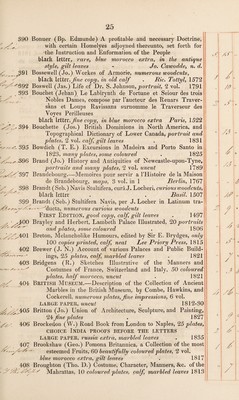 25
390 Bonner (Bp. Edmunde) A profitable and necessary Doctrine,
with certain Homelyes adjoyned thereunto, set forth for
the Instruction and Enformation of the People
black letter, rare, blue morocco extra, in the antique
style, gilt leaves J. Cawodde, n. d.
391 Bossewell (Jo.) Workes of Armorie, numerous woodcuts,
black letter, fine copy, in old calf Ric. Tottyl, 1572
392 Boswell (Jas.) Life of Dr. S. Johnson, portrait, 2 vol. 1791
393 Bouchet (Jehan) Le Labirynth de Fortune et Seiour des trois
Nobles Dames, compose par l'aucteur des Renars Traver-
sans et Loups Ravissans surnomme le Traverseur des
Voyes Perilleuses
black letter, fine copy, in blue morocco extra Paris, 1522
394 Bouchette (Jos.) British Dominions in North America, and
Topographical Dictionary of Lower Canada, portrait and
plates, 2 vol. calf, gilt leaves 1831
395 Bowdich (T. E.) Excursions in Madeira and Porto Santo in
1823, many plates, some coloured 1825
396 Brand (Jo.) History and Antiquities of Newcastle-upon-Tyne,
portraits and many plates, 2 vol. uncut 1789
397 Brandebourg.—Memoires pour servir a l'Histoire de la Maison
de Brandebourg, maps, 3 vol. in 1 Berlin, 1767
398 Brandt (Seb.) Navis Stultifera, curâ J. Locheri, curious woodcuts,
black letter Basil. 1507
399 Brandt (Seb.) Stultifera Navis, per J. Locher in Latinum tra-
ducta, numerous curious woodcuts
FIRST EDITION, good copy, calf, gilt leaves 1497
400 Brayley and Herbert, Lambeth Palace Illustrated, 20 portraits
and plates, some coloured 1806
401 Breton, Melancholike Humours, edited by Sir E. Brydges, only
100 copies printed, calf, neat Lee Priory Press, 1815
402 Brewer (J. N.) Account of various Palaces and Public Build-
ings, 25 plates, calf, marbled leaves 1821
403 Bridgens (R.) Sketches Illustrative of the Manners and
Costumes of France, Switzerland and Italy, 50 coloured
plates, half morocco, uncut 1821
404 BRITISH MUSEUM.—Description of the Collection of Ancient
Marbles in the British Museum, by Combe, Hawkins, and
Cockerell, numerous plates, fine impressions, 6 vol.
LARGE PAPER, uncut 1812-30
405 Britton (Jo.) Union of Architecture, Sculpture, and Painting,
24 fine plates 1827
406 Brockedon (W.) Road Book from London to Naples, 25 plates,
CHOICE INDIA PROOFS BEFORE THE LETTERS
LARGE PAPER, russia extra, marbled leaves 1835
407 Brookshaw (Geo.) Pomona Britannica, a Collection of the most
esteemed Fruits, 60 beautifully coloured plates, 2 vol.
blue morocco extra, gilt leaves 1817
408 Broughton (Tho. D.) Costume, Character, Manners, &c. of the
Mahrattas, 10 coloured plates, calf, marbled leaves 1813